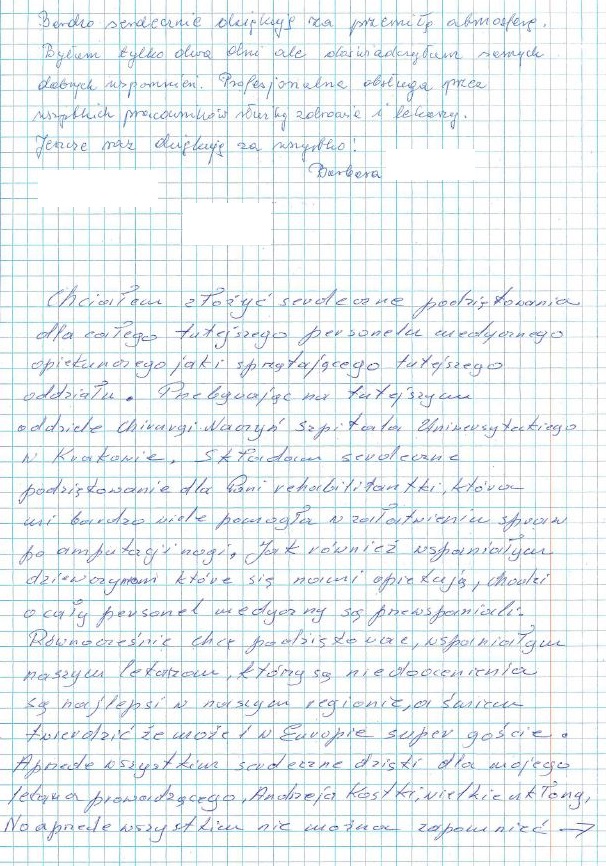 Bardzo serdecznie dziękuję za przemiłą atmosferę.
Byłam tylko dwa dni ale doświadczyłam samych
dobrych wspomnień. Profesjonalna obsługa przez
wszystkich pracowników służby zdrowia i lekarzy.
Jeszcze raz dziękuję za wszystko!
Barbara
Chciałem złożyć serdeczne podziękowania
dla całego tutejszego personelu medycznego
opiekunczego jaki sprzątającego tutejszego
oddziału. Przebywając na tutejszym
oddziele Chirurgi Naczyń Szpitala Uniwersyteckiego
w Krakowie. Składam serdeczne
podziękowanie dla Pani rehabilitantki, która
mi bardzo wiele pomogła w załatwieniu spraw
po amputacji nogi. Jak również wspaniałym
dziewczynom które się nami opiekują, chodzi
o cały personel medyczny są przewspaniali.
Równocześnie chcę podziękować, wspaniałym
naszym lekarzom, którzy są niedoocenienia
są najlepsi w naszym regionie, a śmiem
twierdzić że może i w Europie super goście.
A przede wszystkim serdeczne dzięki dla mojego
lekarza prowadzącego, Andrzeja Kostki, wielkie ukłony,
No a przede wszystkim nie można zapomnieć →